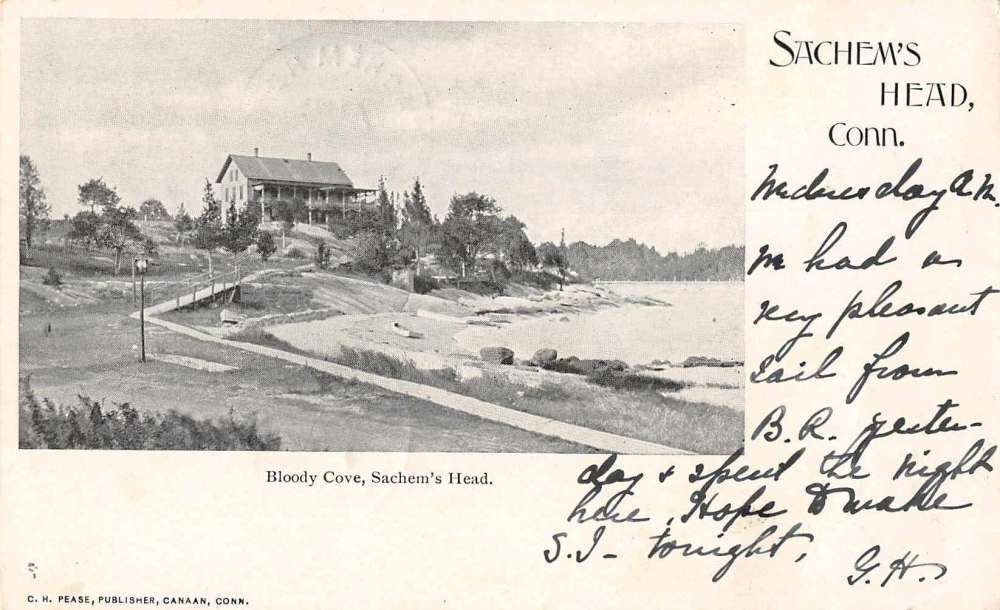 SACHEM'S
HEAD,
CONN.
Wednesday A.M.
had a
very pleasant
sail from
B.R. yester-
day & spent the night
here, Hope to make
S.I- tonight,
G.H.
Bloody Cove, Sachem's Head.
C. H. PEASE, PUBLISHER, CANAAN, CONN.